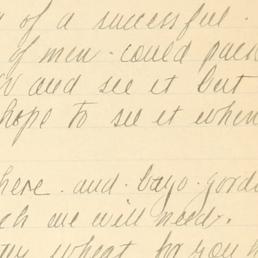 of a successful.
of men. could pack
and see it but
hope to see it when
here. and. bayo. gord
we will need.
wheat for you